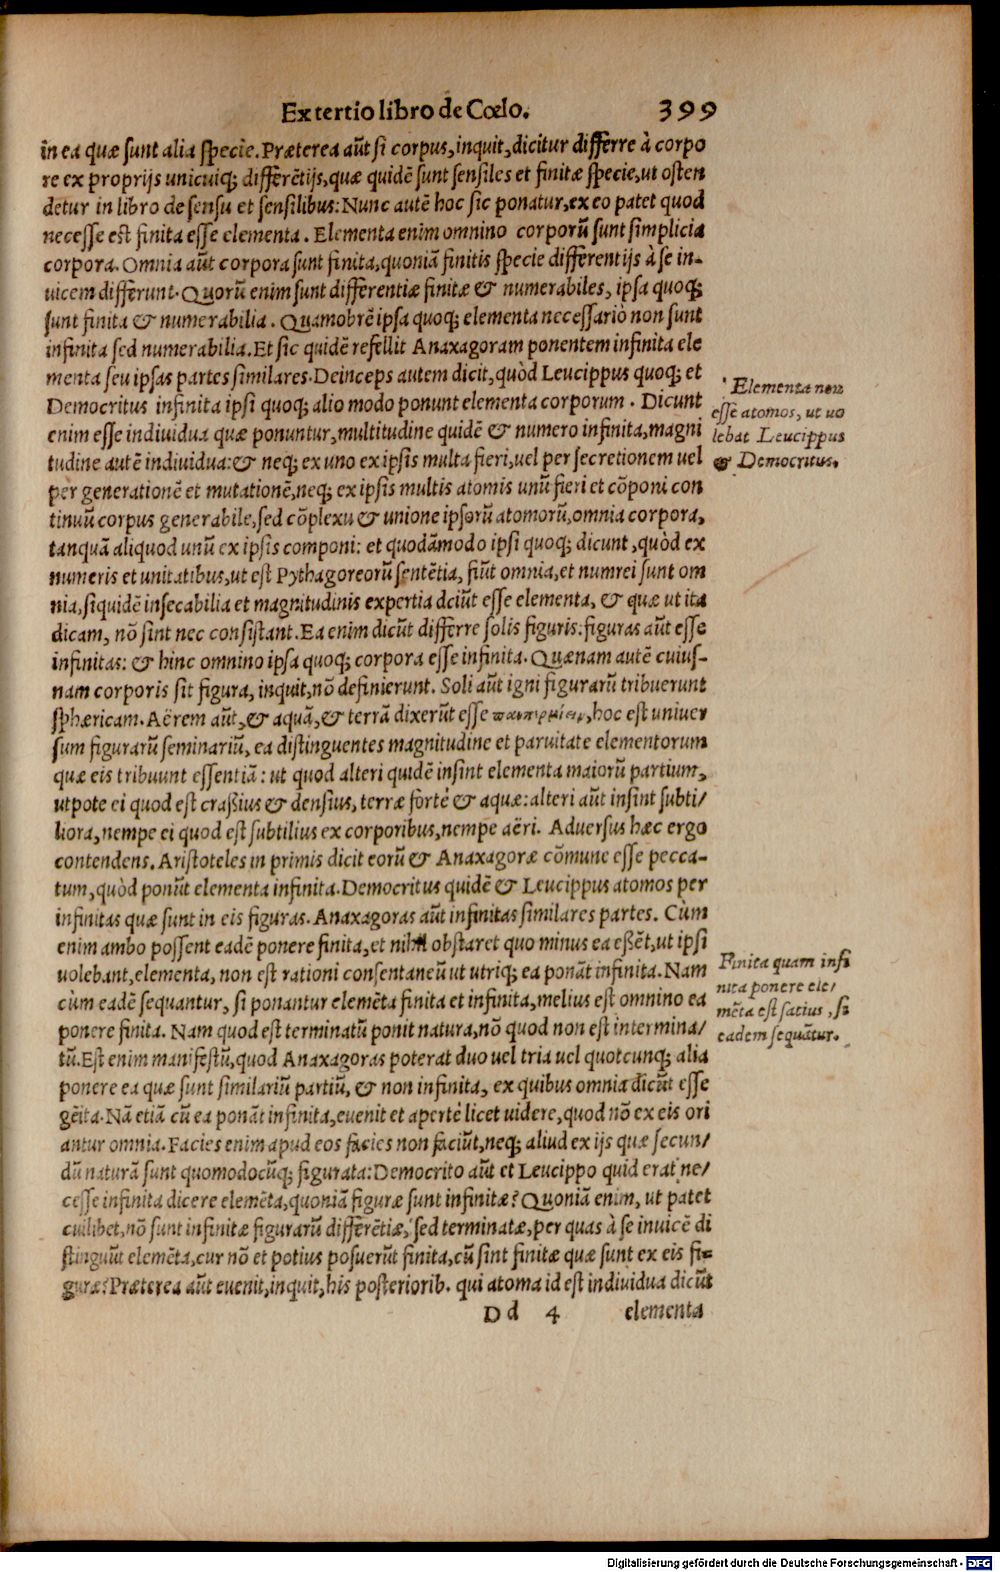 Ex tertio libro de Cœlo. 399
in ea quæ sunt alia specie. Præterea aũt si corpus, inquit, dicitur differre à corpo
re ex proprijs unicuiq; differẽtijs, quæ quidẽ sunt sensiles et finitæ specie, ut osten
detur in libro de sensu et sensilibus: Nunc autẽ hoc sic ponatur, ex eo patet quod
necesse est finita esse elementa. Elementa enim omnino corporũ sunt simplicia
corpora. Omnia aũt corpora sunt finita, quoniã finitis specie differentijs à se in-
uicem differunt. Quorũ enim sunt differentiæ finitæ & numerabiles, ipsa quoq;
sunt finita & numerabilia. Quamobrẽ ipsa quoq; elementa necessariò non sunt
infinita sed numerabilia. Et sic quidẽ refellit Anaxagoram ponentem infinita ele
menta seu ipsas partes similares. Deinceps autem dicit, quòd Leucippus quoq; et
Democritus infinita ipsi quoq; alio modo ponunt elementa corporum. Dicunt
enim esse indiuidua quæ ponuntur, multitudine quidẽ & numero infinita, magni
tudine autẽ indiuidua: & neq; ex uno ex ipsis multa fieri, uel per secretionem uel
per generationẽ et mutationẽ, neq; ex ipsis multis atomis unũ fieri et cõponi con
tinuũ corpus generabile, sed cõplexu & unione ipsorũ atomorũ, omnia corpora,
tanquã aliquod unũ ex ipsis componi: et quodãmodo ipsi quoq; dicunt, quòd ex
numeris et unitatibus, ut est Pythagoreorũ sentẽtia, fiũt omnia, et numrei sunt om
nia, siquidẽ insecabilia et magnitudinis expertia dciũt esse elementa, & quæ ut ita
dicam, nõ sint nec consistant. Ea enim dicũt differre solis figuris: figuras aũt esse
infinitas: & hinc omnino ipsa quoq; corpora esse infinita. Quænam autẽ cuius-
nam corporis sit figura, inquit, nõ definierunt. Soli aũt igni figurarũ tribuerunt
sphæricam. Aërem aũt, & aquã, & terrã dixerũt esse πανσπερμίαν, hoc est uniuer
sum figurarũ seminariũ, ea distinguentes magnitudine et paruitate elementorum
quæ eis tribuunt essentiã: ut quod alteri quidẽ insint elementa maiorũ partium,
utpote ei quod est craßius & densius, terræ fortè & aquæ: alteri aũt insint subti/
liora, nempe ei quod est subtilius ex corporibus, nempe aëri. Aduersus hæc ergo
contendens. Aristoteles in primis dicit eorũ & Anaxagoræ cõmune esse pecca-
tum, quòd ponũt elementa infinita. Democritus quidẽ & Leucippus atomos per
infinitas quæ sunt in eis figuras. Anaxagoras aũt infinitas similares partes. Cùm
enim ambo possent eadẽ ponere finita, et nihil obstaret quo minus ea eßẽt, ut ipsi
uolebant, elementa, non est rationi consentaneũ ut utriq; ea ponãt infinita. Nam
cùm eadẽ sequantur, si ponantur elemẽta finita et infinita, melius est omnino ea
ponere finita. Nam quod est terminatũ ponit natura, nõ quod non est intermina/
tũ. Est enim manifestũ, quod Anaxagoras poterat duo uel tria uel quotcunq; alia
ponere ea quæ sunt similariũ partiũ, & non infinita, ex quibus omnia dicũt esse
gẽita. Nã etiã cũ ea ponãt infinita, euenit et apertè licet uidere, quod nõ ex eis ori
antur omnia. Facies enim apud eos facies non faciũt, neq; aliud ex ijs quæ secun/
dũ naturã sunt quomodocũq; figurata: Democrito aũt et Leucippo quid erat ne/
cesse infinita dicere elemẽta, quoniã figuræ sunt infinitæ? Quoniã enim, ut patet
cuilibet, nõ sunt infinitæ figurarũ differẽtiæ, sed terminatæ, per quas à se inuicẽ di
stinguũt elemẽta, cur nõ et potius posuerũt finita, cũ sint finitæ quæ sunt ex eis fi=
guræ? Præterea aũt euenit, inquit, his posteriorib. qui atoma id est indiuidua dicũt
Dd 4 elementa
Elementa non
esse atomos, ut uo
lebat Leucippus
& Democritus.
Finita quam infi
nita ponere ele/
mẽta est satius, si
eadem sequãtur.
Digitalisierung gefördert durch die Deutsche Forschungsgemeinschaft - DFG